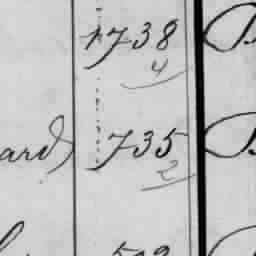 1738 B
4
ard) 735 B
2